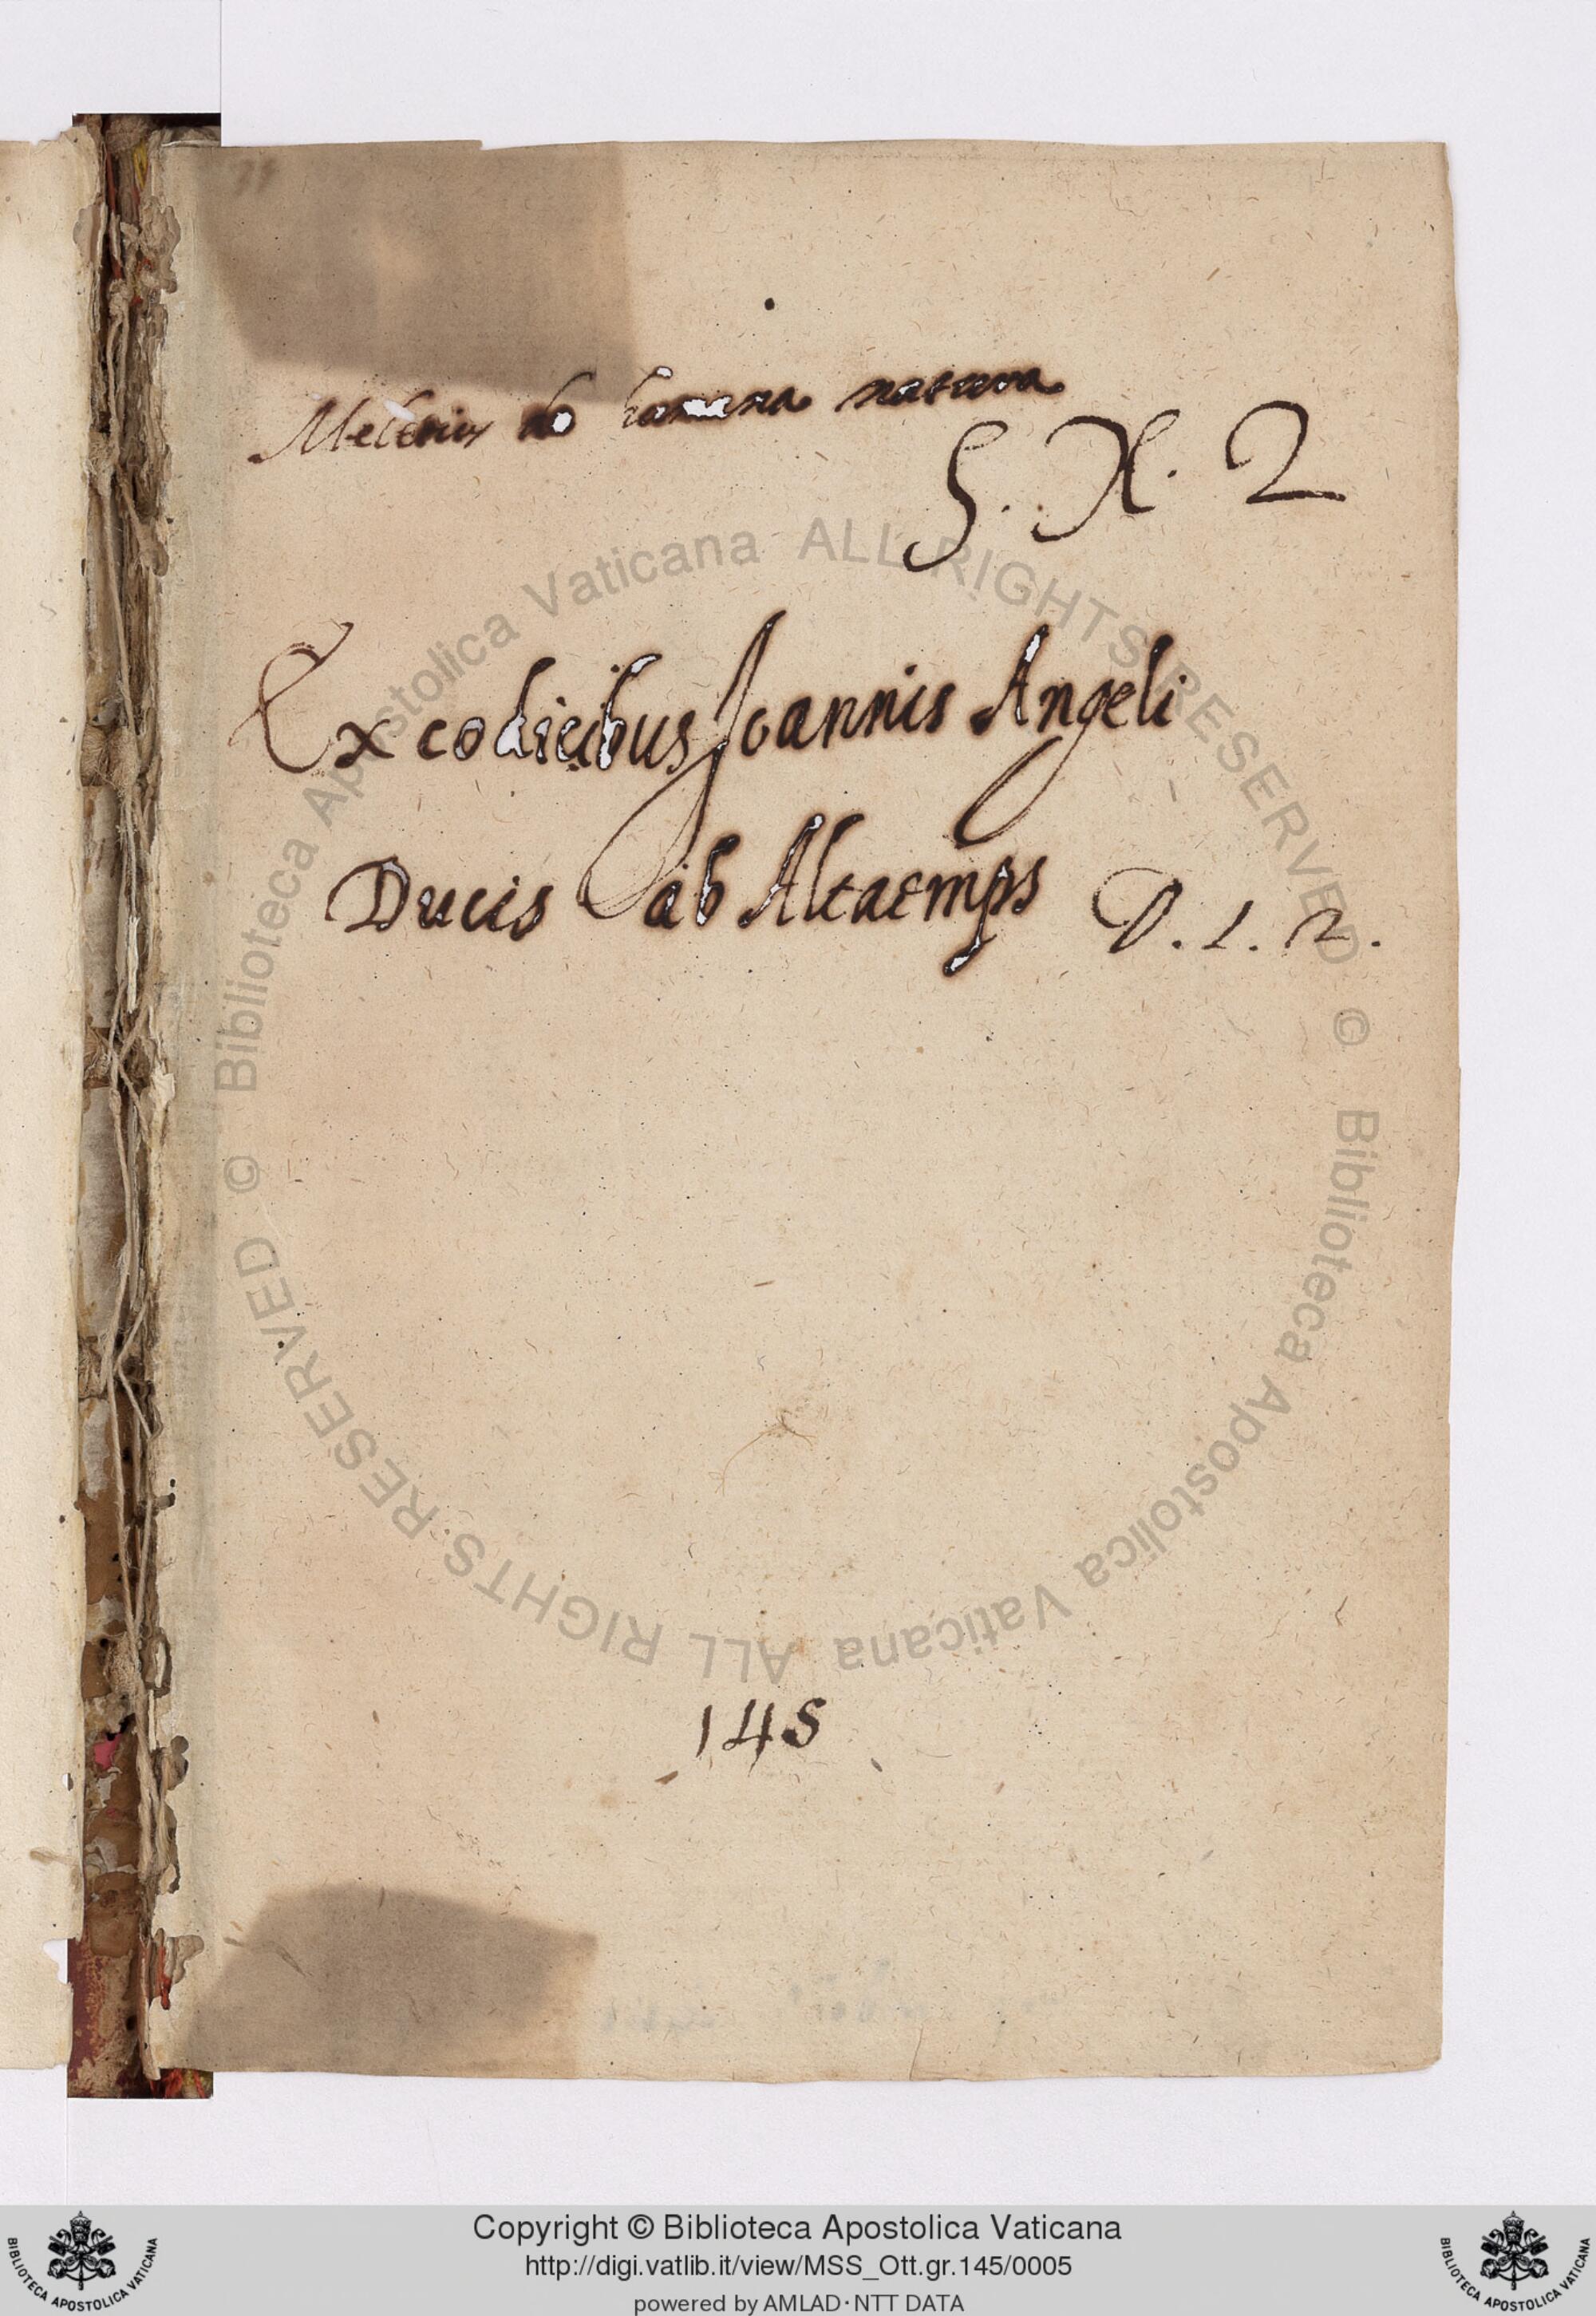 Meletius de humana natura
S. X. 2
Ex codicibus Joannis Angeli
Ducis ab Altaemps D. 1. 2.
145
© Biblioteca Apostolica Vaticana ALL RIGHTS RESERVED © Biblioteca Apostolica Vaticana ALL RIGHTS RESERVED
Copyright © Biblioteca Apostolica Vaticana
http://digi.vatlib.it/view/MSS_Ott.gr.145/0005
powered by AMLAD · NTT DATA
BIBLIOTECA APOSTOLICA VATICANA
BIBLIOTECA APOSTOLICA VATICANA